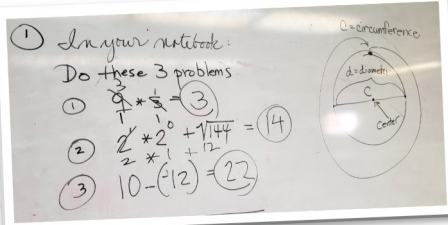 ① In your notebook:
Do these 3 problems
3
① 9 * 1/3 = 3
1 1
② 2¹ * 2⁰ + √144 = 14
2 * 1 + 12
③ 10 - (-12) = 22
C = circumference
d = diameter
C
center